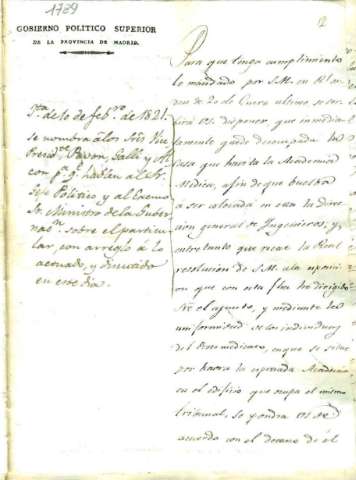 1789
GOBIERNO POLITICO SUPERIOR
DE LA PROVINCIA DE MADRID.
2
Jta. de 10 de febro. de 1821.
se nombra à los Sres. Vice
Presidte. Pavon, Galli y
con p. q. hablen al Sr.
Gefe Politico y al Excmo.
Sr. Ministro de la Gober-
nacn. sobre el particu-
lar, con arreglo á lo
acordado, y discutido
en este dia.
Para que tenga cumplimiento
lo mandado por S.M. en Rl. or-
den de 20 de Enero ultimo se ser-
virá VS. disponer, que inmedia-
tamente quede desocupada la
Casa que habita la Academia
Medica, afin de que buelba
à ser ocupada en esta la direc-
cion general de Ingenieros, y
entretanto que recae la Real
resolucion de S.M. à la esposicion
que con esta fha. he dirigido
sre. el asunto, y mediante la
uniformidad de los individuos
del Proto medicato, en que se situe
por haora la espresada Academia
en el edificio que ocupa el mismo
tribunal, se pondrá VS. de
acuerdo con el decano de él